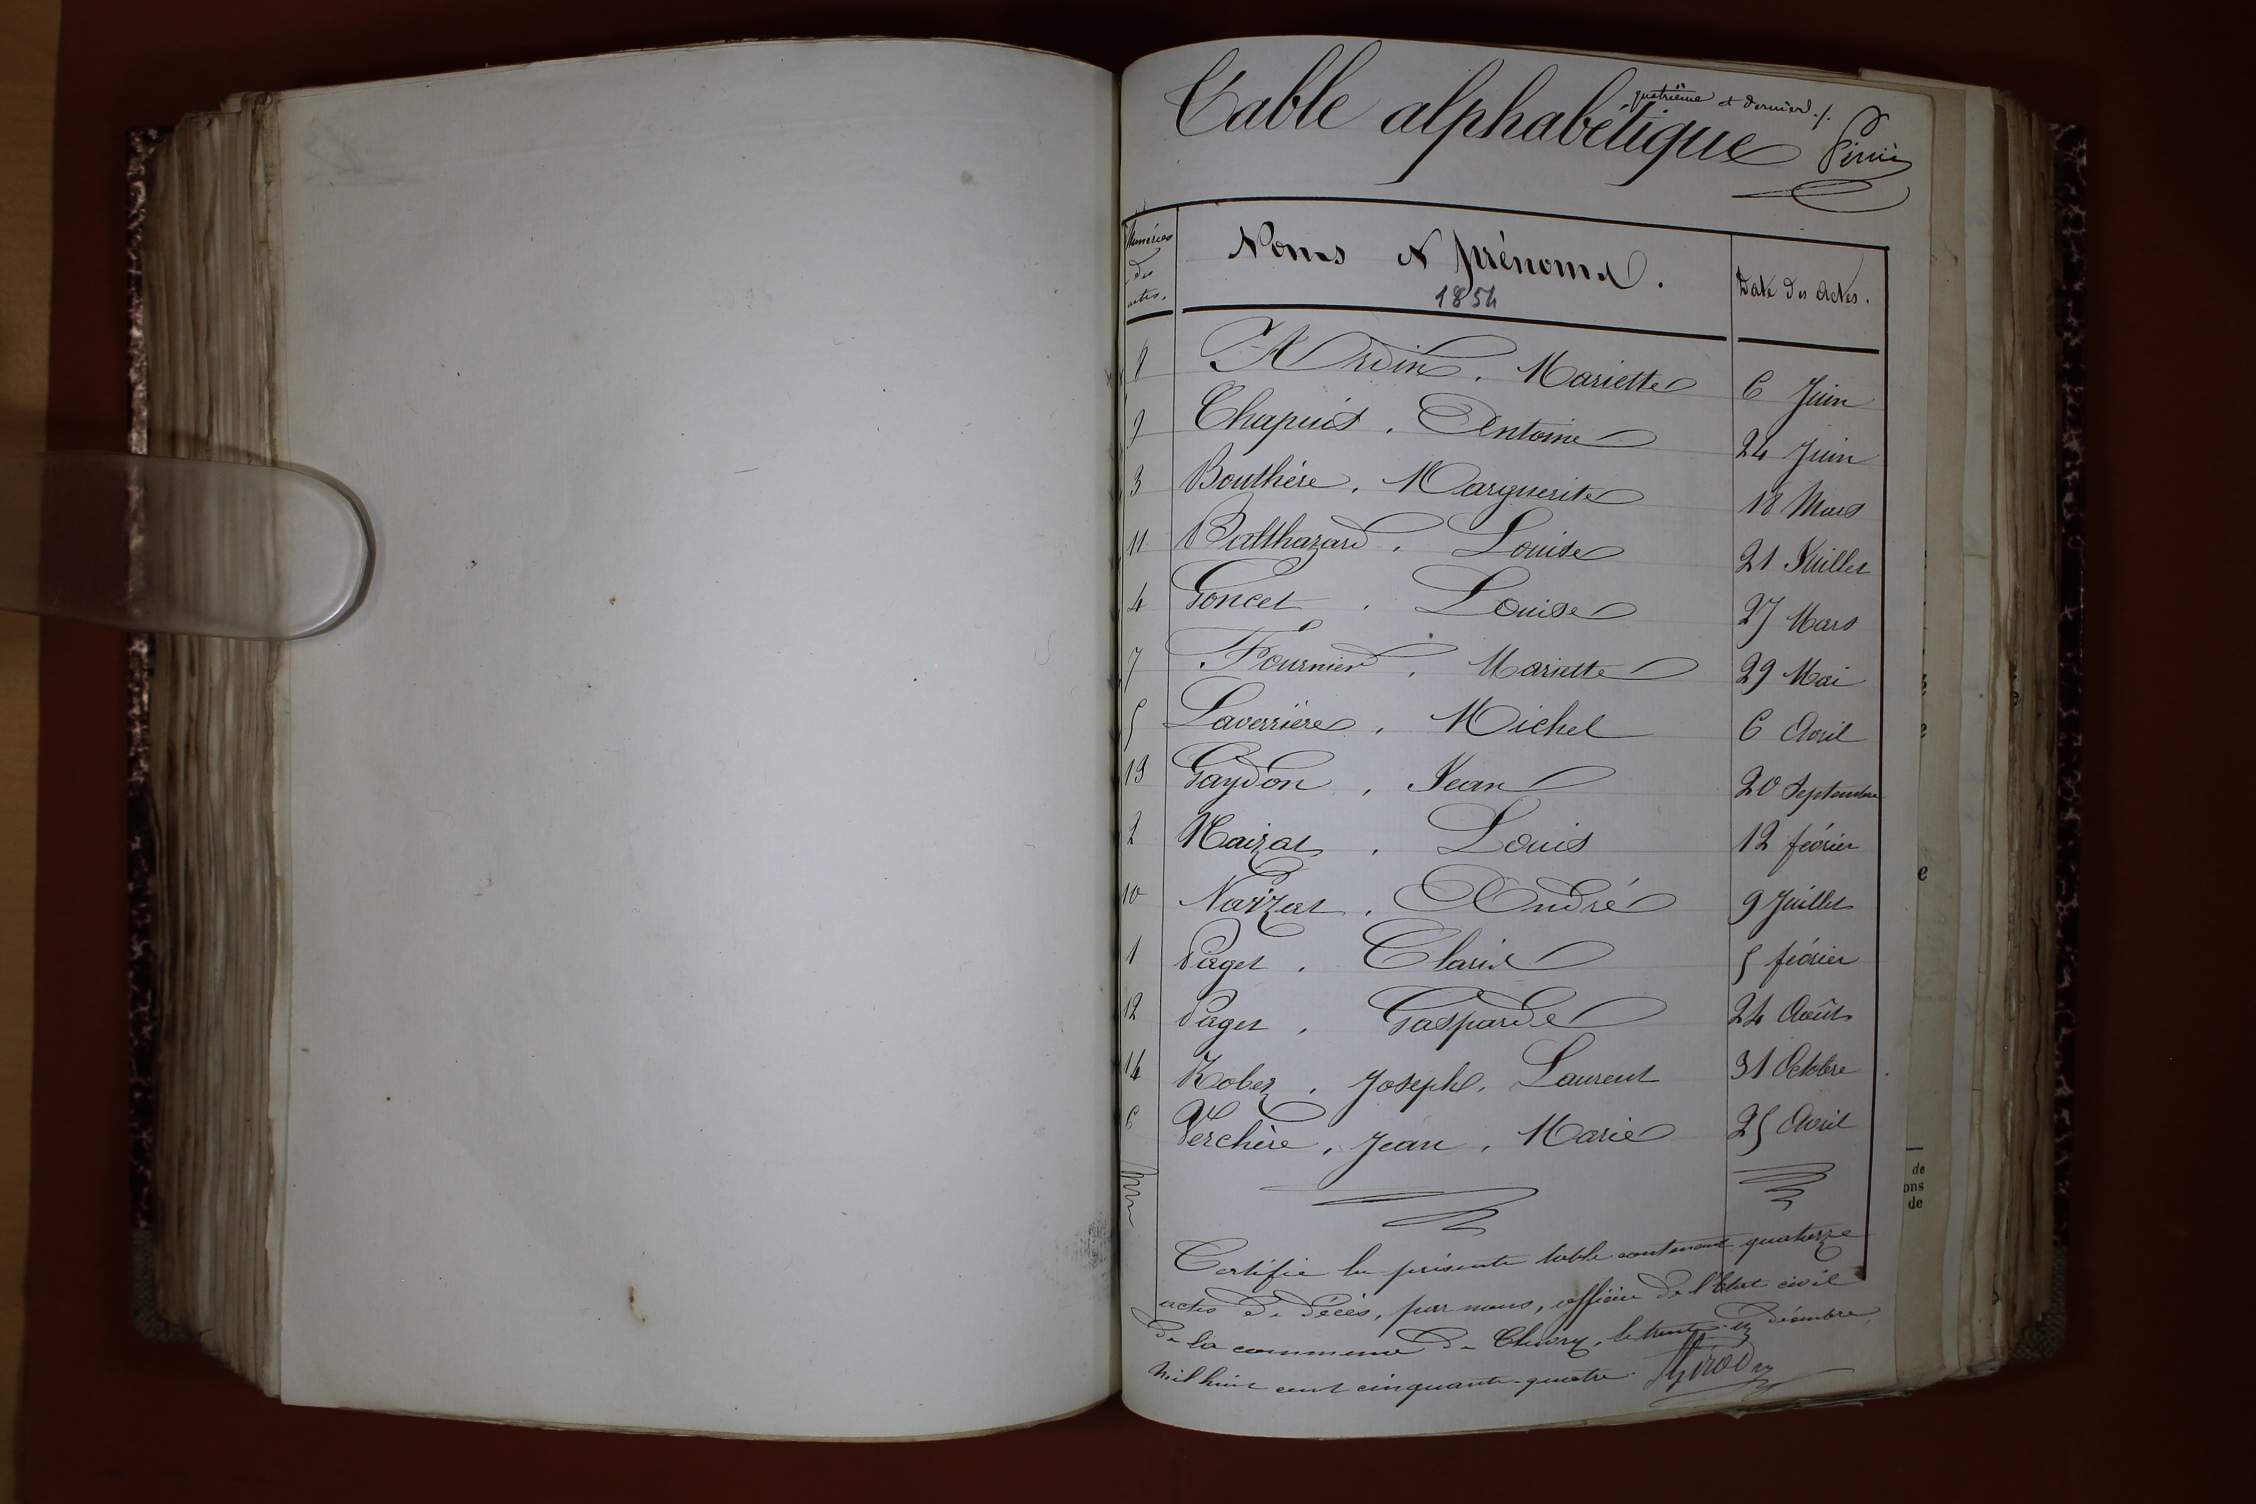 quatrième et dernier ./.
Table alphabétique
Numéros des actes.
Noms et prénoms.
1854
Date des Actes.
8 Ardin, Mariette 6 Juin
9 Chapuis, Antoine 24 Juin
3 Bouthère, Marguerite 18 Mars
11 Balthazard, Louise 21 Juillet
4 Goncet, Louise 27 Mars
7 Fournier, Mariette 29 Mai
5 Laverrière, Michel 6 Avril
13 Gaydon, Jean 20 Septembre
2 Naizat, Louis 12 février
10 Naizat, André 9 Juillet
1 Paget, Claris 5 février
12 Paget, Gasparde 24 Août
14 Robez, Joseph, Laurent 31 Octobre
6 Verchère, Jean, Marie 25 Avril
Certifié la présente table contenant quatorze
actes de décès, par nous, officier de l'Etat civil
de la commune de Chevry, le trente-un décembre,
mil huit cent cinquante-quatre. Girod
e
de
ons
de